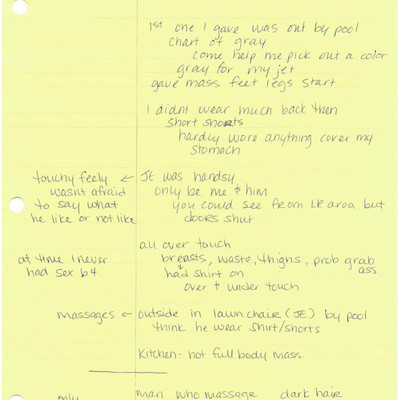 1st one I gave was out by pool
chart of gray
come help me pick out a color
gray for my jet
gave mass feet legs start
I didnt wear much back then
short shorts
hardly wore anything cover my
stomach
touchy feely ← JE was handsy
wasnt afraid only be me + him
to say what you could see from LR area but
he like or not like doors shut
all over touch
at time I never breasts, waste, thighs, prob grab
had sex b4 had shirt on ass
over + under touch
massages ← outside in lawn chair (JE) by pool
think he wear shirt/shorts
Kitchen - not full body mass.
only man who massage dark hair